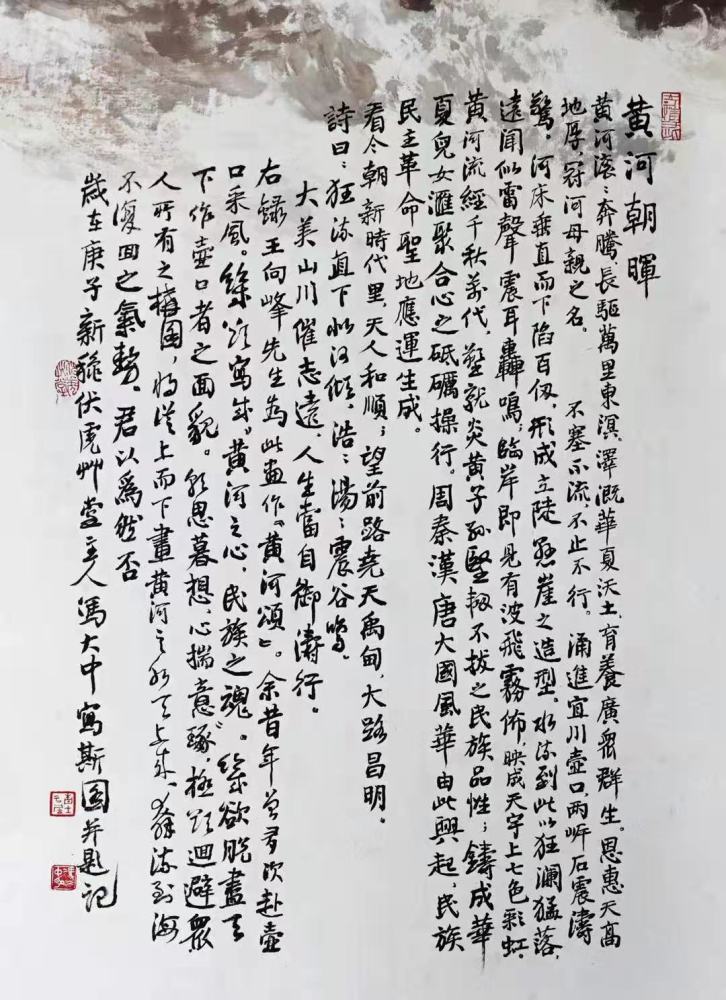 黄河朝暉
黄河滚滚奔騰,長驅萬里東溟,澤溉華夏沃土,育養廣眾群生。恩惠天高
地厚,冠河母親之名。 不塞不流不止不行。涌進宜川壺口,两岸石震濤
驚,河床垂直而下陷百仞,形成立陡懸崖之造型。水流到此以狂瀾猛落,
遠聞似雷聲震耳轟鳴;臨岸即見有波飛霧佈,映成天宇上七色彩虹。
黄河流經千秋萬代,塑就炎黄子孫堅韧不拔之民族品性;鑄成華
夏兒女滙聚合心之砥礪操行。周秦漢唐大國風華由此興起,民族
民主革命聖地應運生成。
看今朝新時代里,天人和順;望前路堯天禹甸,大路昌明。
詩曰:狂流直下似江傾,浩浩湯湯震谷鳴。
大美山川催志遠,人生當自御濤行。
右録王向峰先生為此畫作《黄河頌》。余昔年曾多次赴壺
口采風。總欲寫出黄河之心,民族之魂。總欲脱盡天
下作壺口者之面貌。朝思暮想心揣意琢,極欲迴避眾
人所有之構圖,而從上而下畫黄河之水天上来,奔流到海
不復回之氣勢。君以爲然否
歲在庚子新秋伏虎艸堂主人馮大中寫斯圖并題記